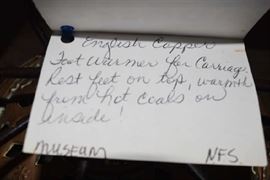 English Copper
Foot Warmer for Carriage.
Rest feet on top, warmth
from hot coals on
inside!
MUSEUM NFS.